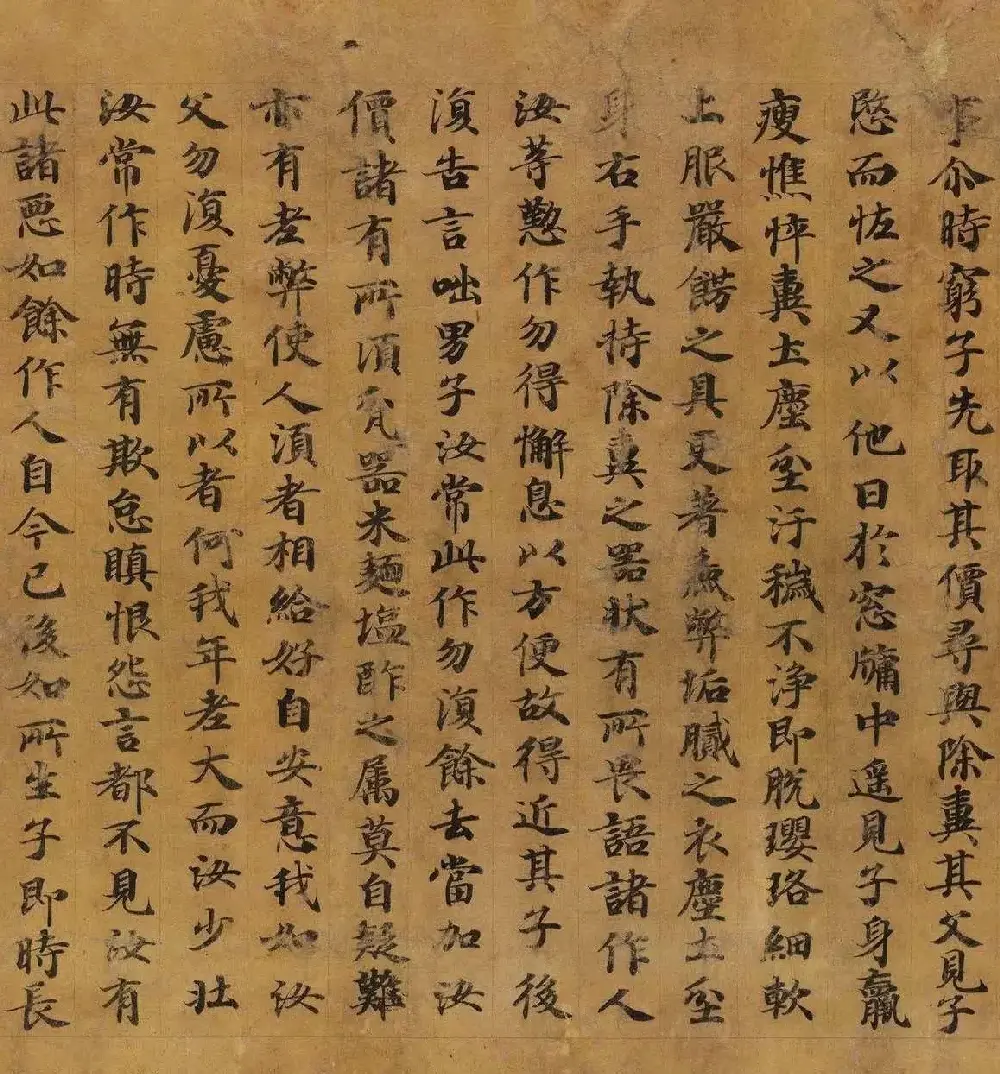 事尒時窮子先取其價尋與除糞其父見子
愍而恠之又以他日於窓牖中遥見子身羸
瘦憔悴糞土塵坌汙穢不淨即脫瓔珞細軟
上服嚴餝之具更著麁弊垢膩之衣塵土坌
身右手執持除糞之器狀有所畏語諸作人
汝等懃作勿得懈息以方便故得近其子後
復告言咄男子汝常此作勿復餘去當加汝
價諸有所須瓫器米麵塩酢之属莫自疑難
亦有老弊使人須者相給好自安意我如汝
父勿復憂慮所以者何我年老大而汝少壯
汝常作時無有欺怠瞋恨怨言都不見汝有
此諸惡如餘作人自今已後如所生子即時長